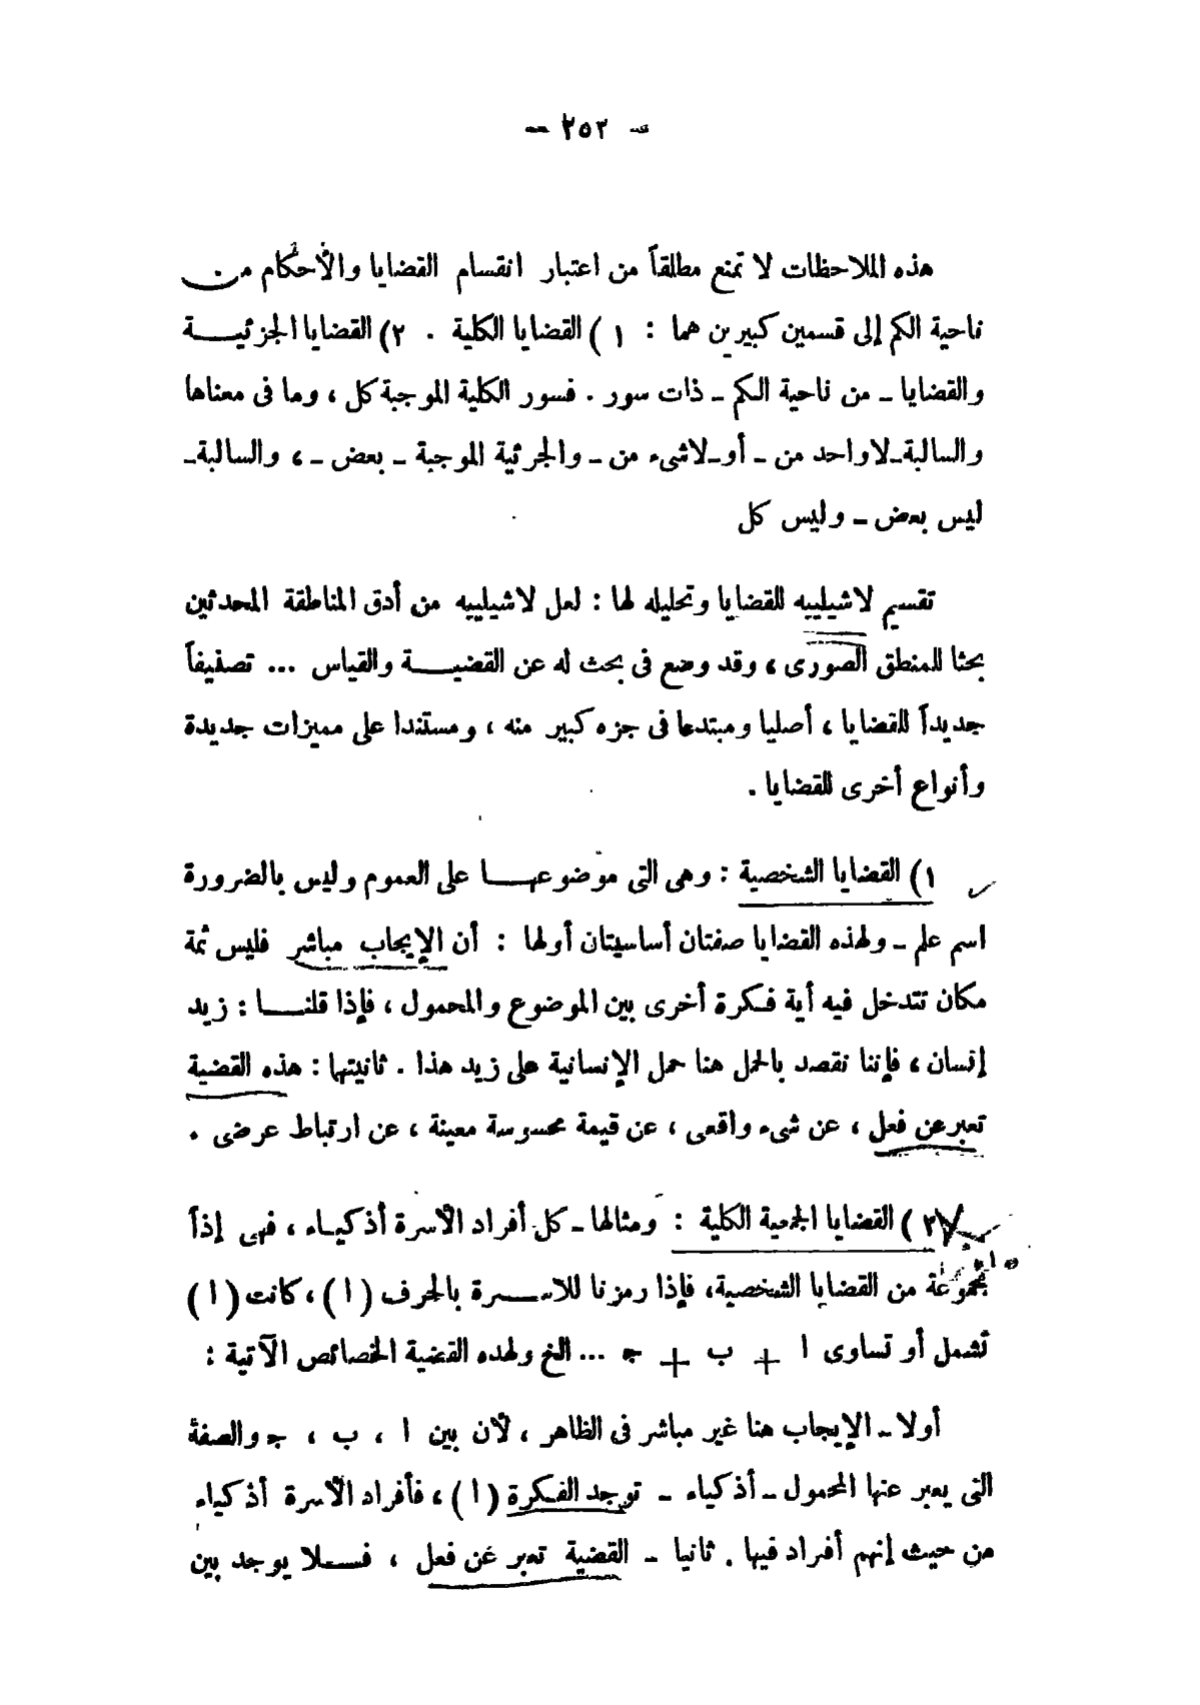 - ٢٥٢ -
هذه الملاحظات لا تمنع مطلقاً من اعتبار انقسام القضايا والأحكام من
ناحية الكم إلى قسمين كبيرين هما : ١ ) القضايا الكلية . ٢) القضايا الجزئيــة
والقضايا ـ من ناحية الكم ـ ذات سور . فسور الكلية الموجبة كل ، وما فى معناها
والسالبة ـ لا واحد من ـ أو ـ لاشىء من ـ والجزئية الموجبة ـ بعض ـ ، والسالبة ـ
ليس بعض ـ وليس كل
تقسيم لاشيلييه للقضايا وتحليله لها : لعل لاشيلييه من أدق المناطقة المحدثين
بحثا للمنطق الصورى ، وقد وضع فى بحث له عن القضيــة والقياس ... تصنيفاً
جديداً للقضايا ، أصليا ومبتدعا فى جزء كبير منه ، ومستندا على مميزات جديدة
وأنواع أخرى للقضايا .
١) القضايا الشخصية : وهى التى موضوعهــا على العموم وليس بالضرورة
اسم علم ـ ولهذه القضايا صفتان أساسيتان أولها : أن الإيجاب مباشر فليس ثمة
مكان تتدخل فيه أية فكرة أخرى بين الموضوع والمحمول ، فإذا قلنــا : زيد
إنسان ، فإننا نقصد بالحمل هنا حمل الإنسانية على زيد هذا . ثانيتها : هذه القضية
تعبر عن فعل ، عن شىء واقعى ، عن قيمة محسوسة معينة ، عن ارتباط عرضى .
٢ ) القضايا الجمعية الكلية : ومثالها ـ كل أفراد الأسرة أذكيـاء ، فهى إذاً
مجموعة من القضايا الشخصية، فإذا رمزنا للاســرة بالحرف ( ا ) ، كانت ( ا )
تشمل أو تساوى ا + ب + ج ... الخ ولهذه القضية الخصائص الآتية :
أولا ـ الإيجاب هنا غير مباشر فى الظاهر ، لأن بين ا ، ب ، ج والصفة
التى يعبر عنها المحمول ـ أذكياء ـ توجد الفكرة ( ا ) ، فأفراد الأسرة أذكياء
من حيث إنهم أفراد فيها . ثانيا ـ القضية تعبر عن فعل ، فــلا يوجد بين